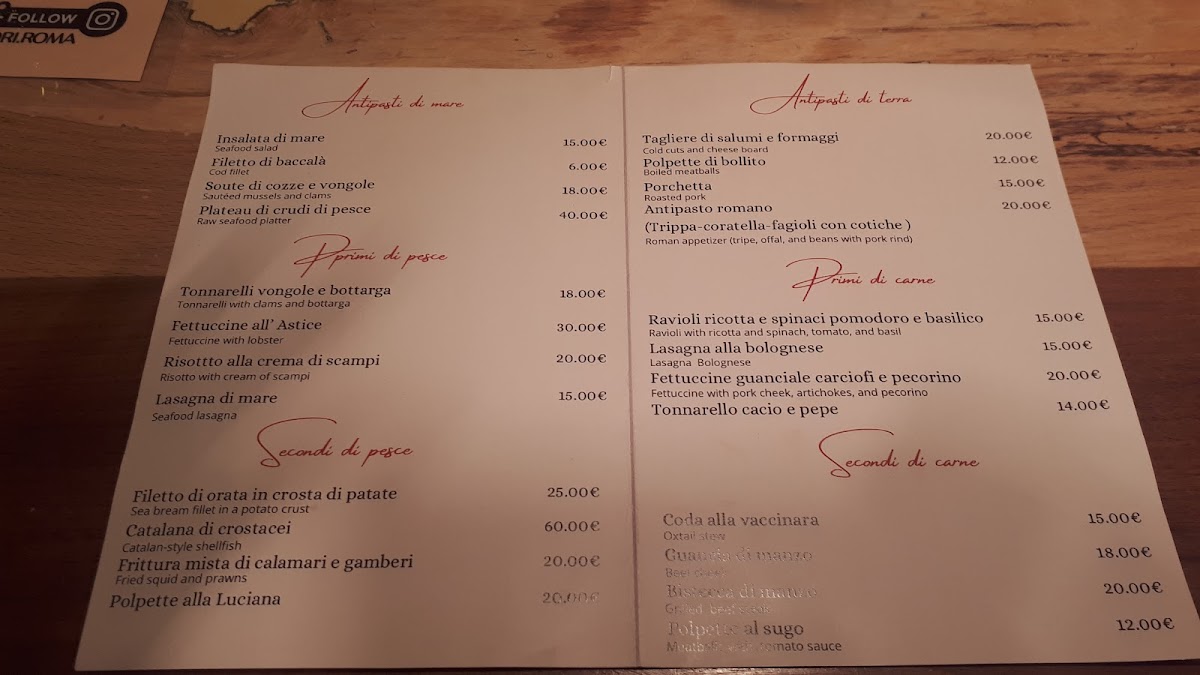 FOLLOW
RI.ROMA
Antipasti di mare
Insalata di mare 15.00€
Seafood salad
Filetto di baccalà 6.00€
Cod fillet
Soute di cozze e vongole 18.00€
Sautéed mussels and clams
Plateau di crudi di pesce 40.00€
Raw seafood platter
Pprimi di pesce
Tonnarelli vongole e bottarga 18.00€
Tonnarelli with clams and bottarga
Fettuccine all' Astice 30.00€
Fettuccine with lobster
Risottto alla crema di scampi 20.00€
Risotto with cream of scampi
Lasagna di mare 15.00€
Seafood lasagna
Secondi di pesce
Filetto di orata in crosta di patate 25.00€
Sea bream fillet in a potato crust
Catalana di crostacei 60.00€
Catalan-style shellfish
Frittura mista di calamari e gamberi 20.00€
Fried squid and prawns
Polpette alla Luciana 20.00€
Antipasti di terra
Tagliere di salumi e formaggi 20.00€
Cold cuts and cheese board
Polpette di bollito 12.00€
Boiled meatballs
Porchetta 15.00€
Roasted pork
Antipasto romano 20.00€
(Trippa-coratella-fagioli con cotiche )
Roman appetizer (tripe, offal, and beans with pork rind)
Primi di carne
Ravioli ricotta e spinaci pomodoro e basilico 15.00€
Ravioli with ricotta and spinach, tomato, and basil
Lasagna alla bolognese 15.00€
Lasagna Bolognese
Fettuccine guanciale carciofi e pecorino 20.00€
Fettuccine with pork cheek, artichokes, and pecorino
Tonnarello cacio e pepe 14.00€
Secondi di carne
Coda alla vaccinara 15.00€
Oxtail stew
Guancia di manzo 18.00€
Beef cheek
Bistecca di manzo 20.00€
Grilled beef steak
Polpette al sugo 12.00€
Meatballs with tomato sauce